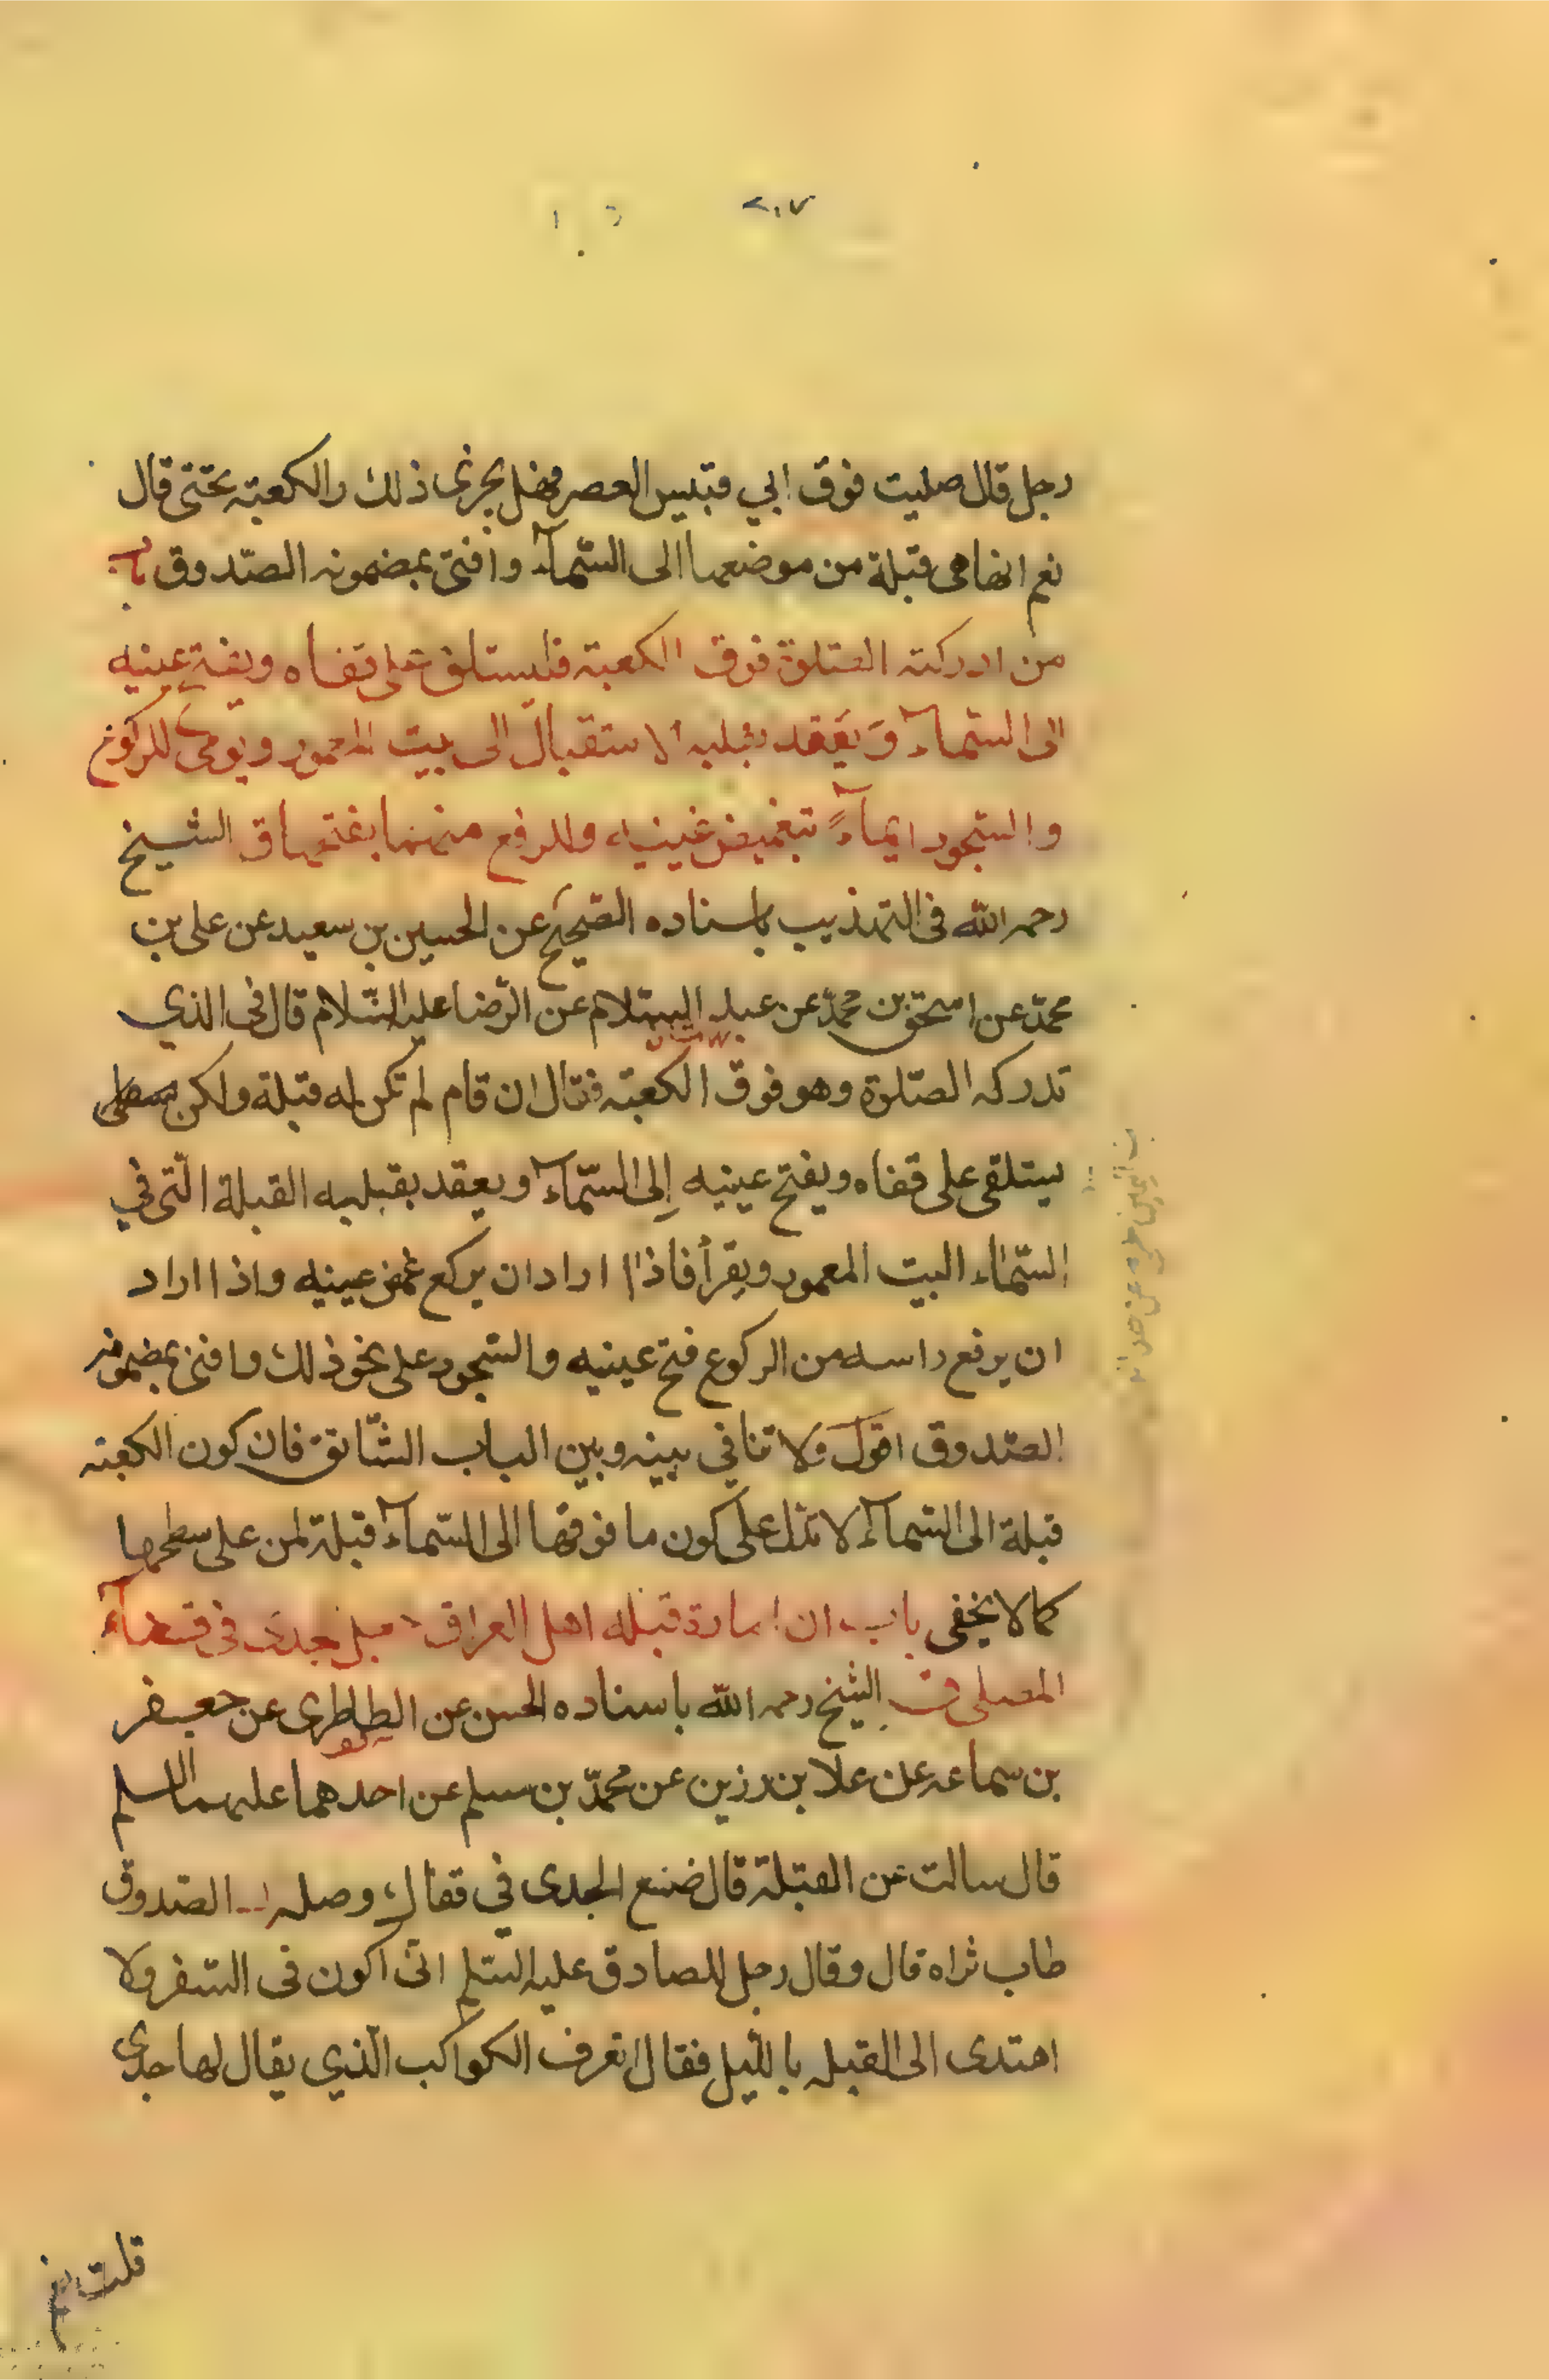 ٢٠٧
رجل قال صليت فوق ابي قبيس العصر فهل يجزى ذلك والكعبة تحتى قال
نعم انها هى قبلة من موضعها الى السّمآء وافتى بمضمونه الصّدوق باب
من ادركته الصّلوة فوق الكعبة فليستلق على قفاه ويفتح عينيه
الى السّمآء وَيَعقد بقلبه الاستقبال الى بيت المعمور ويومى للركوع
والسّجود ايمآءً بتغميض عينيه وللرفع منهما بفتحهما ق الشيخ
رحمه الله فى التهذيب باسناده الصّحيح عن الحسين بن سعيد عن على بن
محمّد عن اسحق بن محمّد عن عبد السّلام عن الرّضا عليه السّلام قال فى الذي
تدركه الصّلوة وهو فوق الكعبة فقال ان قام لم تكن له قبلة ولكن
يستلقى على قفاه ويفتح عينيه إلى السّمآء ويعقد بقبلبه القبلة الّتى في
السّمٰاء البيت المعمور ويقرأ فاذا اراد ان يركع غمض عينيه واذا اراد
ان يرفع راسه من الركوع فتح عينيه والسّجود على نحو ذلك وافتى بمضمونه
الصّدوق اقول ولا تنافي بينه وبين الباب السّابق فان كون الكعبة
قبلة الى السّمآء لا تدل على كون ما فوقها الى السّمآء قبلة لمن على سطحها
كما لا يخفى باب ان امارة قبلة اهل العراق جعل جدى فى قفآء
المصلى الشيخ رحمه الله باسناده الحسن عن الطاطرى عن جعفر
بن سماعه عن علا بن رزين عن محمّد بن مسلم عن احدهما عليهما السلم
قال سالت عن القبلة قال ضع الجدى في قفاك وصله الصّدوق
طاب ثراه قال وقال رجل للصادق عليه السّلم انّى اكون فى السّفر ولا
اهتدى الى القبله بالليل فقال اتعرف الكواكب الّذي يقال لها جدى
قلت نعم